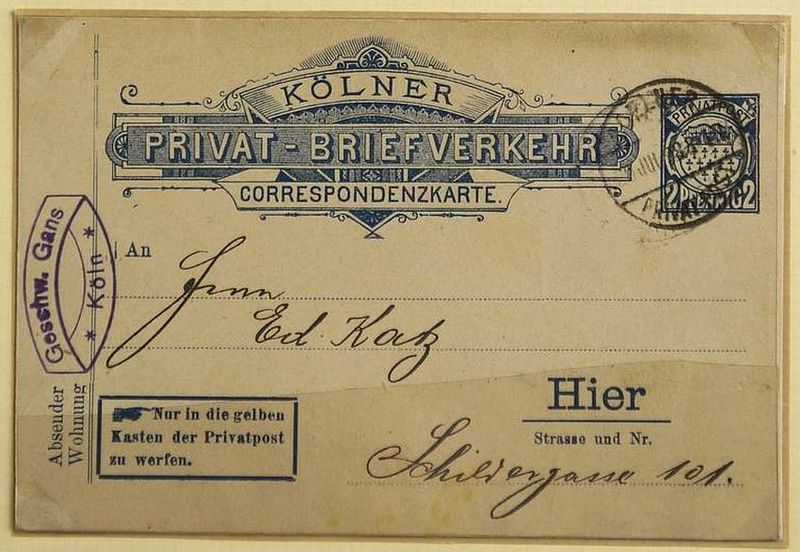 KÖLNER
PRIVAT-BRIEFVERKEHR
CORRESPONDENZKARTE.
PRIVATPOST
2 2
JUL
PRIVAT
Geschw. Gans
* Köln *
An
Herrn
Ed. Katz
Hier
Strasse und Nr.
Schildergasse 101.
Nur in die gelben
Kasten der Privatpost
zu werfen.
Absender
Wohnung